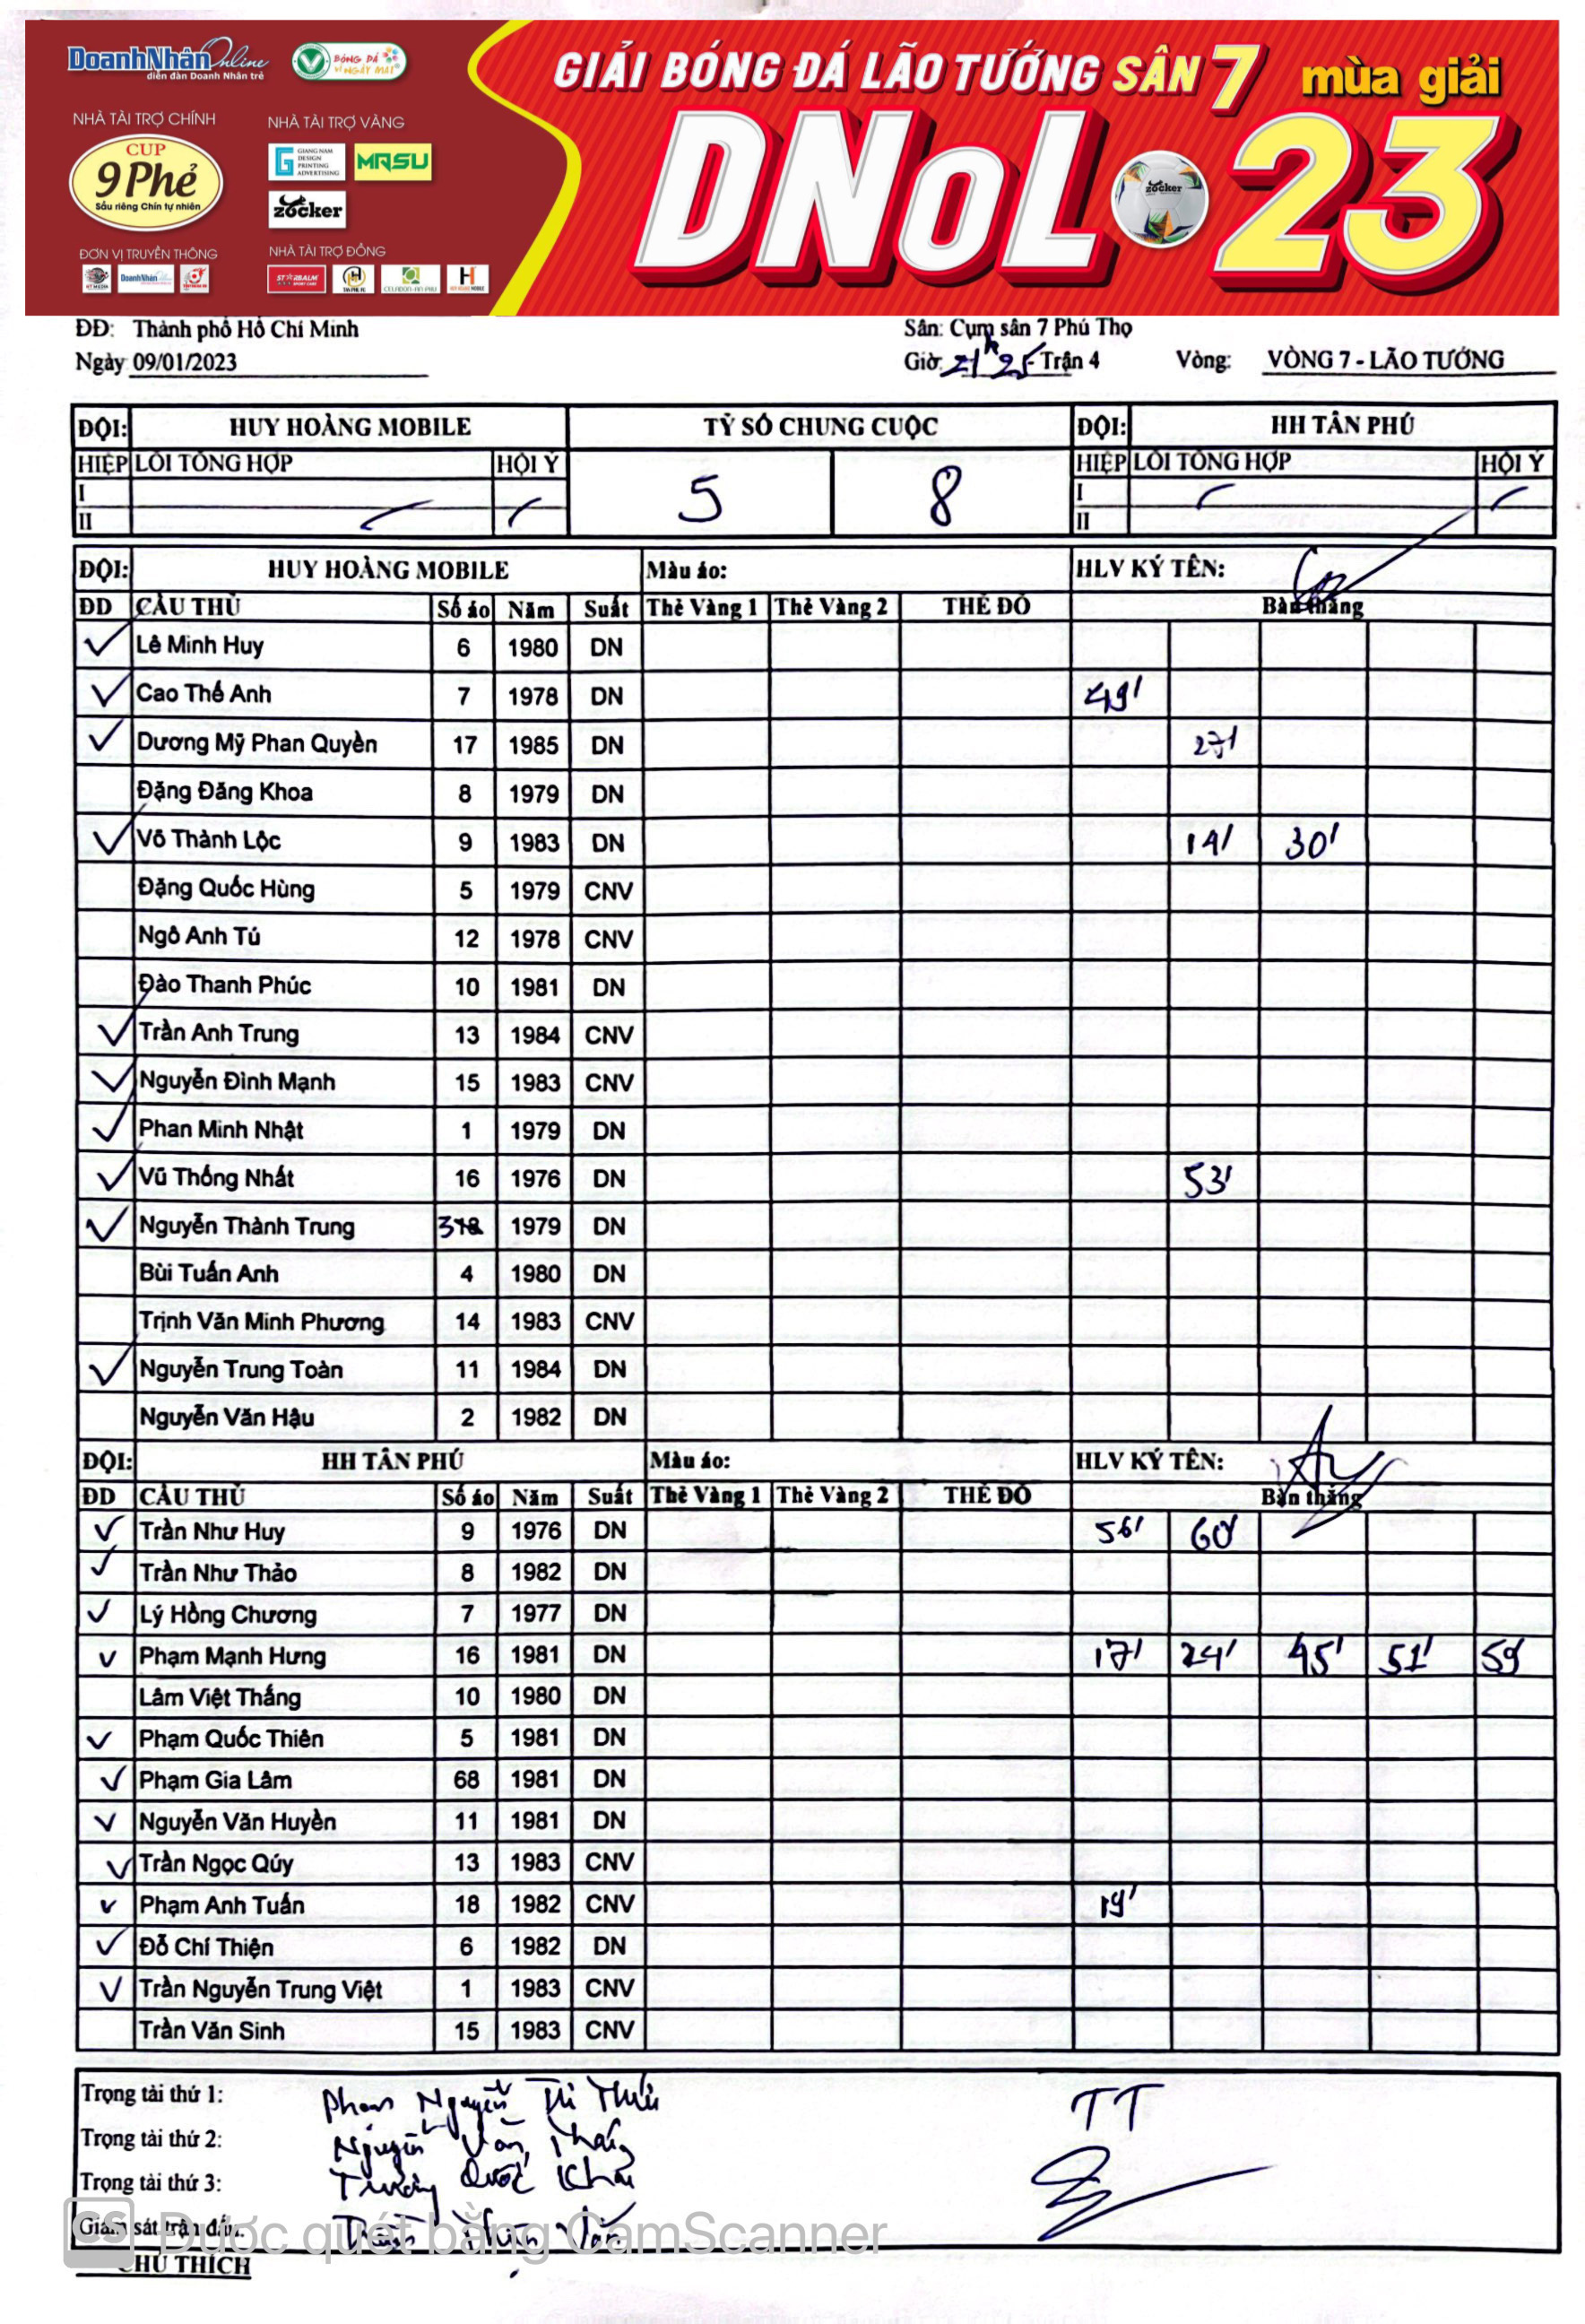 DoanhNhân Online
diễn đàn Doanh Nhân trẻ
BÓNG ĐÁ
VÌ NGÀY MAI
GIẢI BÓNG ĐÁ LÃO TƯỚNG SÂN 7 mùa giải
DNOL 23
NHÀ TÀI TRỢ CHÍNH
NHÀ TÀI TRỢ VÀNG
CUP
9 Phẻ
Sầu riêng Chín tự nhiên
GIANG NAM
DESIGN
PRINTING
ADVERTISING
MASU
zocker
zocker
ĐƠN VỊ TRUYỀN THÔNG
NHÀ TÀI TRỢ ĐỒNG
DoanhNhân
STARBALM
CELADON-AN PHU
ĐĐ: Thành phố Hồ Chí Minh
Sân: Cụm sân 7 Phú Thọ
Ngày 09/01/2023
Giờ: 21h25 - Trận 4 Vòng: VÒNG 7 - LÃO TƯỚNG
ĐỘI: HUY HOÀNG MOBILE TỶ SỐ CHUNG CUỘC ĐỘI: HH TÂN PHÚ
HIỆP LỖI TỔNG HỢP HỘI Ý 5 8 HIỆP LỖI TỔNG HỢP HỘI Ý
I I
II II
ĐỘI: HUY HOÀNG MOBILE Màu áo: HLV KÝ TÊN:
ĐD CẦU THỦ Số áo Năm Suất Thẻ Vàng 1 Thẻ Vàng 2 THẺ ĐỎ Bàn thắng
Lê Minh Huy 6 1980 DN
Cao Thế Anh 7 1978 DN 49'
Dương Mỹ Phan Quyền 17 1985 DN 27'
Đặng Đăng Khoa 8 1979 DN
Võ Thành Lộc 9 1983 DN 14' 30'
Đặng Quốc Hùng 5 1979 CNV
Ngô Anh Tú 12 1978 CNV
Đào Thanh Phúc 10 1981 DN
Trần Anh Trung 13 1984 CNV
Nguyễn Đình Mạnh 15 1983 CNV
Phan Minh Nhật 1 1979 DN
Vũ Thống Nhất 16 1976 DN 53'
Nguyễn Thành Trung 1979 DN
Bùi Tuấn Anh 4 1980 DN
Trịnh Văn Minh Phương 14 1983 CNV
Nguyễn Trung Toàn 11 1984 DN
Nguyễn Văn Hậu 2 1982 DN
ĐỘI: HH TÂN PHÚ Màu áo: HLV KÝ TÊN:
ĐD CẦU THỦ Số áo Năm Suất Thẻ Vàng 1 Thẻ Vàng 2 THẺ ĐỎ Bàn thắng
Trần Như Huy 9 1976 DN 56' 60'
Trần Như Thảo 8 1982 DN
Lý Hồng Chương 7 1977 DN
Phạm Mạnh Hưng 16 1981 DN 17' 24' 45' 51' 59'
Lâm Việt Thắng 10 1980 DN
Phạm Quốc Thiên 5 1981 DN
Phạm Gia Lâm 68 1981 DN
Nguyễn Văn Huyền 11 1981 DN
Trần Ngọc Qúy 13 1983 CNV
Phạm Anh Tuấn 18 1982 CNV 19'
Đỗ Chí Thiện 6 1982 DN
Trần Nguyễn Trung Việt 1 1983 CNV
Trần Văn Sinh 15 1983 CNV
Trọng tài thứ 1: Phạm Nguyễn TT
Trọng tài thứ 2: Nguyễn Văn
Trọng tài thứ 3: Trương Quốc
Giám sát trận đấu:
CS Được quét bằng CamScanner
CHÚ THÍCH